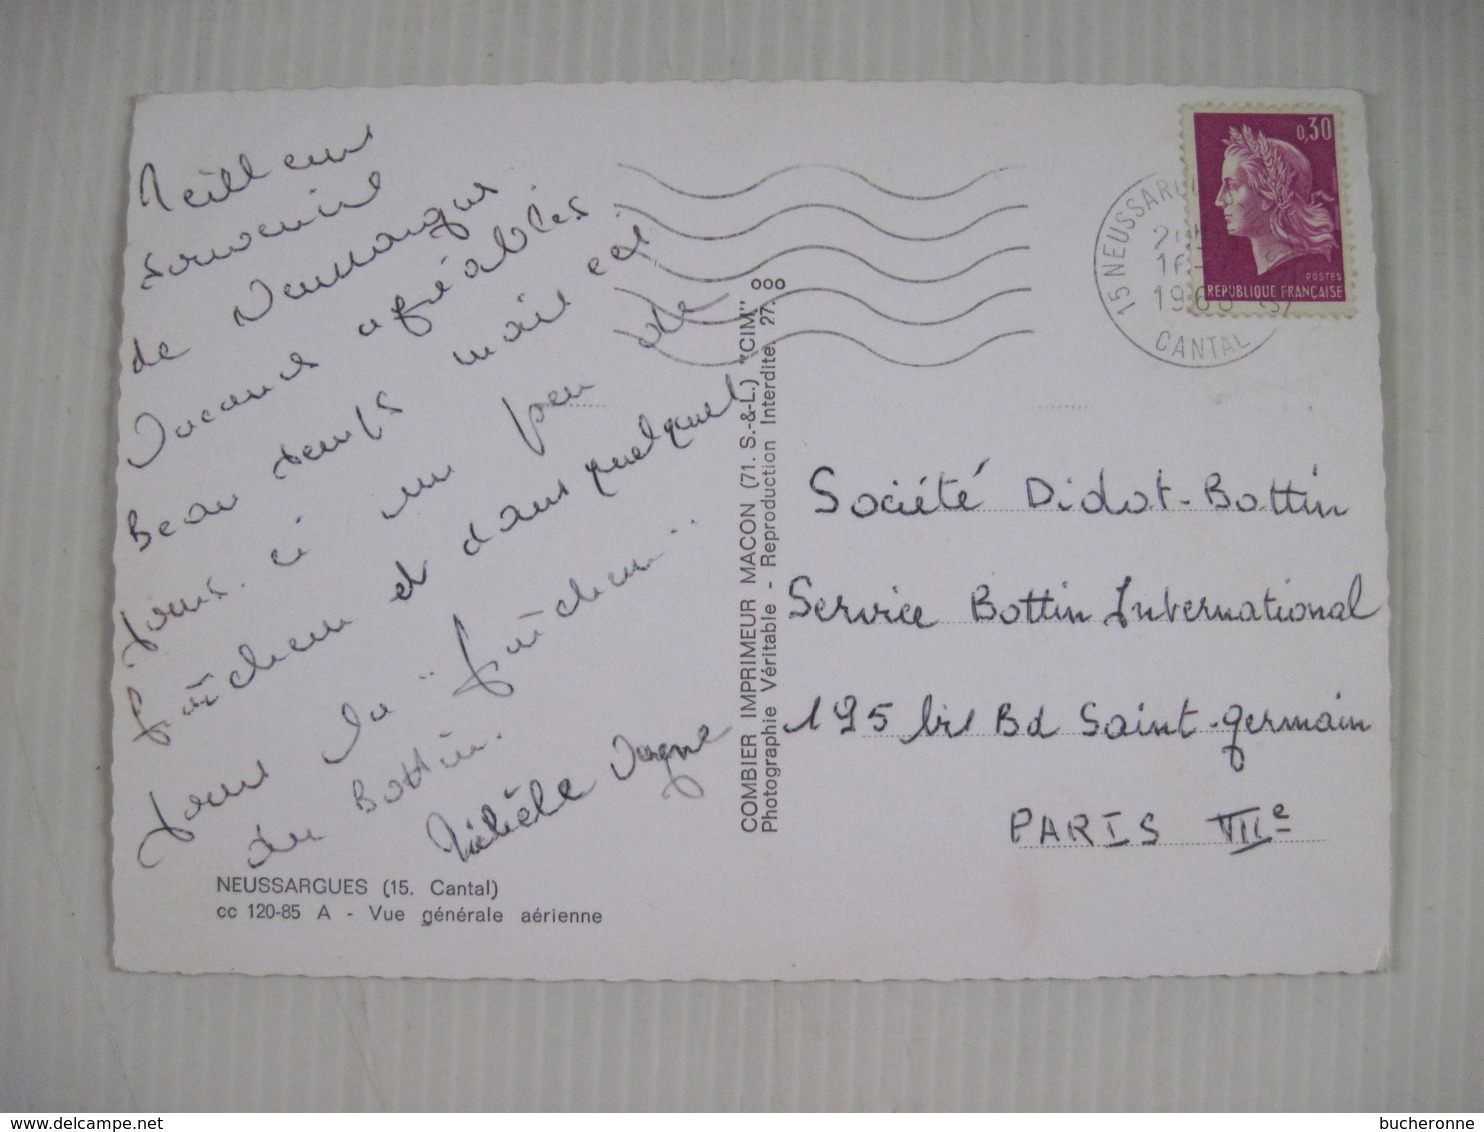 Meilleurs
souvenirs
de Neussargues
Vacances agréables
Beau temps mais ici
jours. ci un peu de
fraîcheur et dans quelques
jours la "fraîcheur"
du Bottin.
Michèle
NEUSSARGUES (15. Cantal)
cc 120-85 A - Vue générale aérienne
COMBIER IMPRIMEUR MACON (71. S.-&-L.) "CIM"
Photographie Véritable - Reproduction Interdite 27.
0,30
POSTES
REPUBLIQUE FRANÇAISE
15 NEUSSARGUES
CANTAL
Société Didot-Bottin
Service Bottin International
195 bis Bd Saint-germain
PARIS VIIe
bucheronne